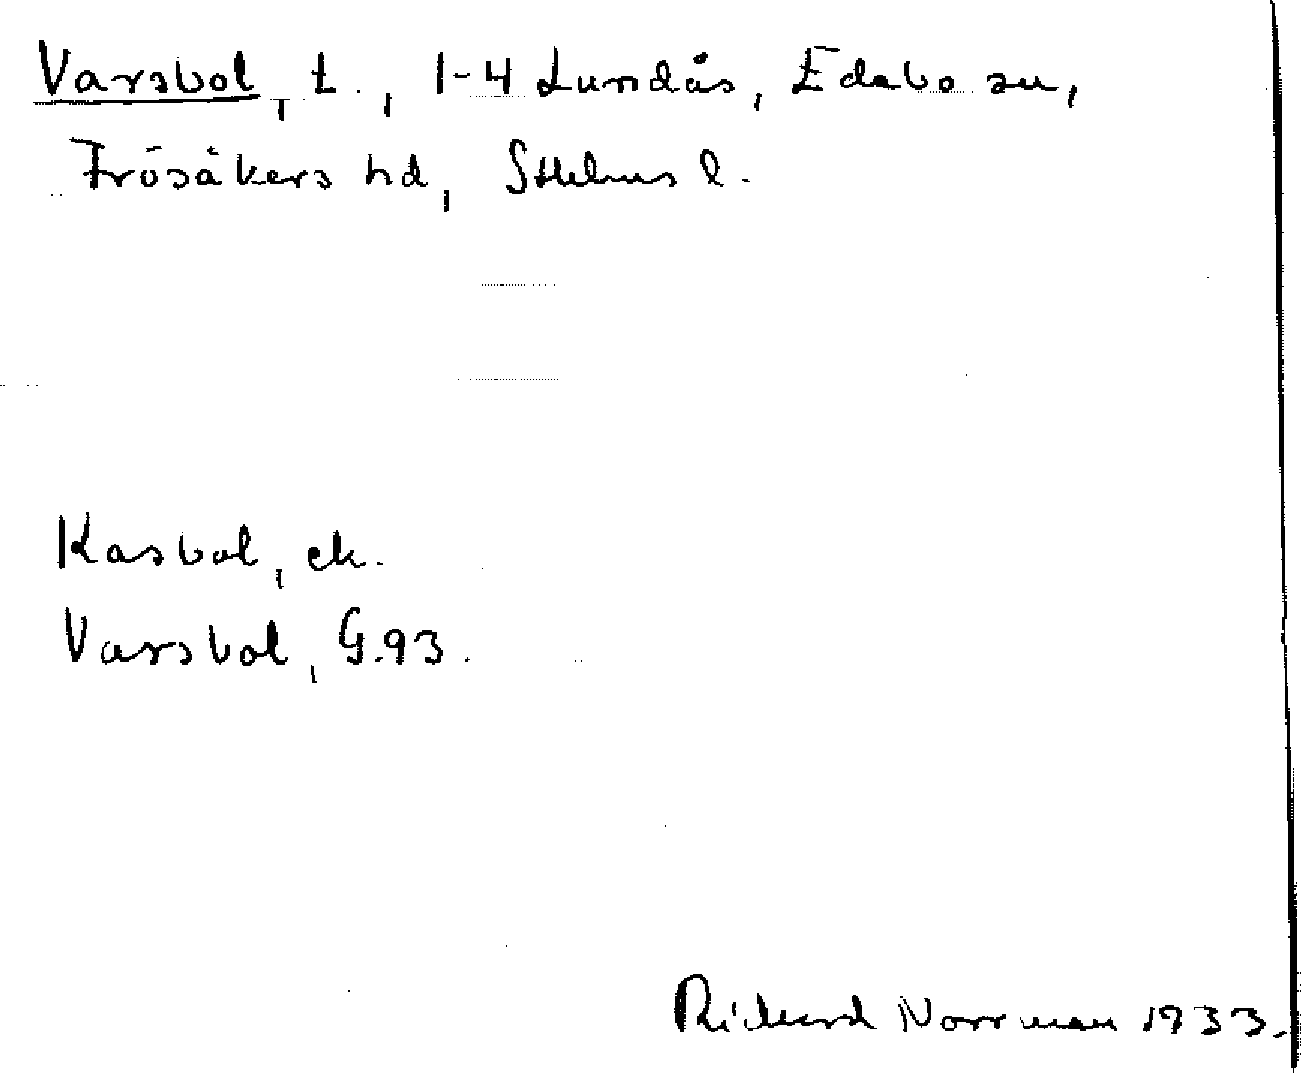 Varsbol, t., 1-4 Lundås, Edebo sn,
Frösåkers hd, Sthlms l.
Kasbol, ek.
Varsbol, G.93.
Rickard Norrman 1933.